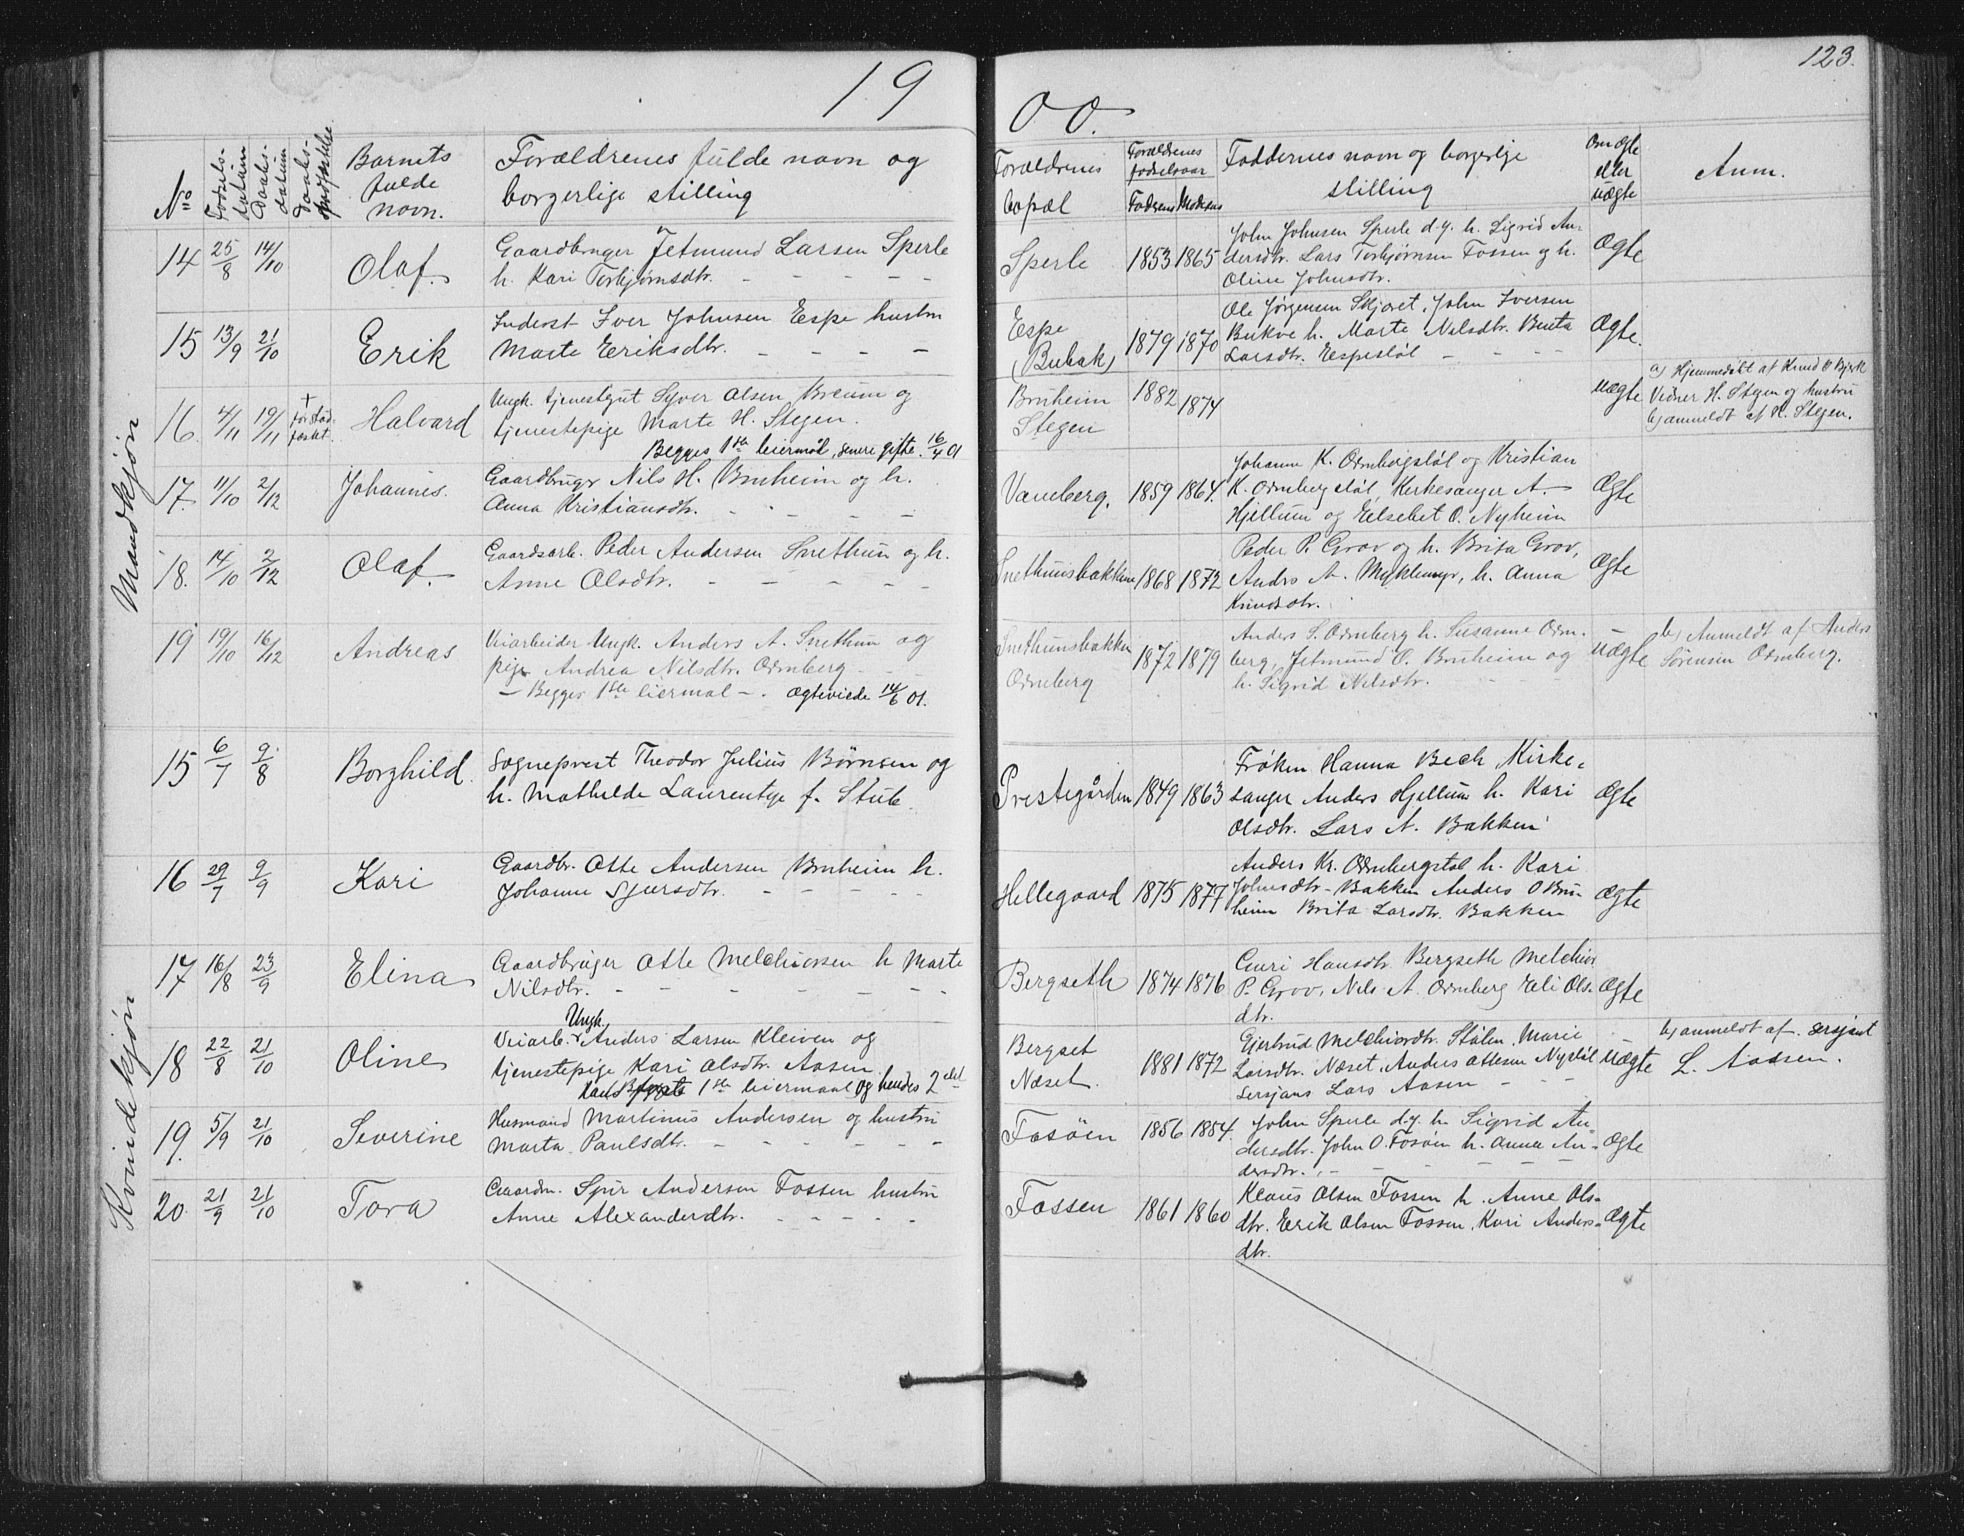 19
00.
123.
No Fødsels-datum Daabs-datum Daabs- Barnets fulde navn. Forældrenes fulde navn og borgerlige stilling
Forældrenes bopæl Forældrenes fødselsaar Faderens Moderens Faddernes navn og borgerlige stilling Om ægte eller uægte Anm.
Mandkjøn
14 25/8 14/10 Olaf. Gaardbruger Jetmund Larsen Sperle
h. Kari Torbjørnsdtr.
Sperle 1853 1865 John Johnsen Sperle d.y. h. Sigrid An-
dersdtr. Lars Torbjørnsen Fossen og h.
Oline Johnsdtr.
Ægte
15 13/9 21/10 Erik Inderst Iver Johnsen Espe hustru
Marte Eriksdtr.
Espe
(Bubak)
1879 1870 Ole Jørgensen Skjoret, John Iversen
Bukve h. Marte Nilsdtr. Benta
Larsdtr. Espestøl
Ægte.
16. 4/11 19/11 + Halvard Ungk. tjenestegut Syver Olsen Breum og
tjenestepige Marte H. Stegen.
Begges 1ste leiermål, senere gifte. 16/4 01
Bruheim
Stegen
1882 1874 uægte
a) Hjemmedøbt af Knud O Bjerk
Vidner H. Stegen og hustru
b) anmeldt af H. Stegen.
17. 11/10 2/12 Johannes. Gaardbrugr Nils H. Bruheim og h.
Anna Kristiansdtr.
Vamberg. 1859 1864. Johanne K. Ormbergstøl og Kristian
K. Ormbergstøl, Kirkesanger A.
Hjellum og Elsebet O. Nyheim
Ægte
18. 14/10 2/12 Olaf. Gaardsarb. Peder Andersen Snethun og h.
Anne Olsdtr.
Snethunsbakken 1868 1872 Peder P. Grov og h. Brita Grov,
Andrs A. Myklemyr, h. Anna
Knudsdtr.
Ægte
19 19/10 16/12 Andreas Veiarbeider Ungk. Anders A. Snethun og
pige Andrea Nilsdtr. Ormberg
– Begges 1ste leiermal –. Ægteviede 14/6 01.
Snethunsbakken
Ormberg
1872 1879 Anders S. Ormberg h. Susanne Orm-
berg, Jetmund O. Bruheim og
h. Sigrid Nilsdtr.
uægte
b) Anmeldt af Anders
Sørensen Ormberg.
Kvindekjøn
15 6/7 9/8 Borghild. Sogneprest Theodor Julius Børnsen og
h. Mathilde Laurentze f. Stub.
Prestegården 1849 1863 Frøken Hanna Bech, Kirke-
sanger Anders Hjellum h. Kari
Olsdtr. Lars A. Bakken
Ægte
16 29/7 9/9 Kari Gaardbr. Otte Andersen Bruheim h.
Johanne Sjursdtr.
Hellegaard 1875 1877 Anders Kr. Ormbergstøl h. Kari
Johnsdtr – Bakken Anders O Bru-
heim Brita Larsdtr. Bakken
Ægte
17 16/8 23/9 Elina Gaardbruger Otte Melchiorsen h Marte
Nilsdtr.
Bergseth 1874 1876 Guri Hansdtr Bergseth Melchior
P. Grov, Nils A. Ormberg Eli Ols-
dtr.
Ægte
18 22/8 21/10 Oline Veiarb. Ungk. Anders Larsen Kleiven og
tjenestepige Kari Olsdtr. Aasen.
hans 1ste leiermaal og hendes 2det
Bergset
Næset.
1881 1872 Gjertrud Melchiordtr. Stølen, Marie
Larsdtr. Næset, Anders Ottesen Nystøl
Sersjans Lars Aasen
uægte
b) anmeldt af. sersjant
L. Aasen.
19. 5/9 21/10 Severine Husmand Martinus Andersen og hustru
Marta Paulsdtr.
Fosøen 1856 1854. John Sperle d.y. h. Sigrid An-
dersdtr. John O. Fosøen h. Anna An-
dersdtr.
Ægte
20. 21/9 21/10 Tora Gaardm. Spir Andersen Fossen hustru
Anne Alexanderdtr.
Fossen 1861 1860 Klaus Olsen Fossen h. Anne Ols-
dtr. Erik Olsen Fossen, Kari Anders-
dtr.
Ægte